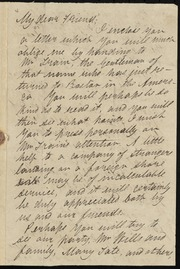 My dear Friend,
I enclose you
a letter which you will much
oblige me by handing to
Mr Train, the gentleman of
that name who has just re-
turned to Boston in the America
You will perhaps be so
kind to read it and you will
then see what points I wish
you to press personally on
Mr Train's attention. A little
help to a company of strangers
landing on a foreign shore
may be of incalculable
service, and it will certainly
be duly appreciated both by
us and our friends.
Perhaps you will try to
see our party, Mr Will and
family, Mary and others